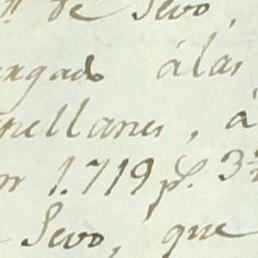 de Sevo,
álas
pellanes, á
1.719 p.s 3
Sevo, que